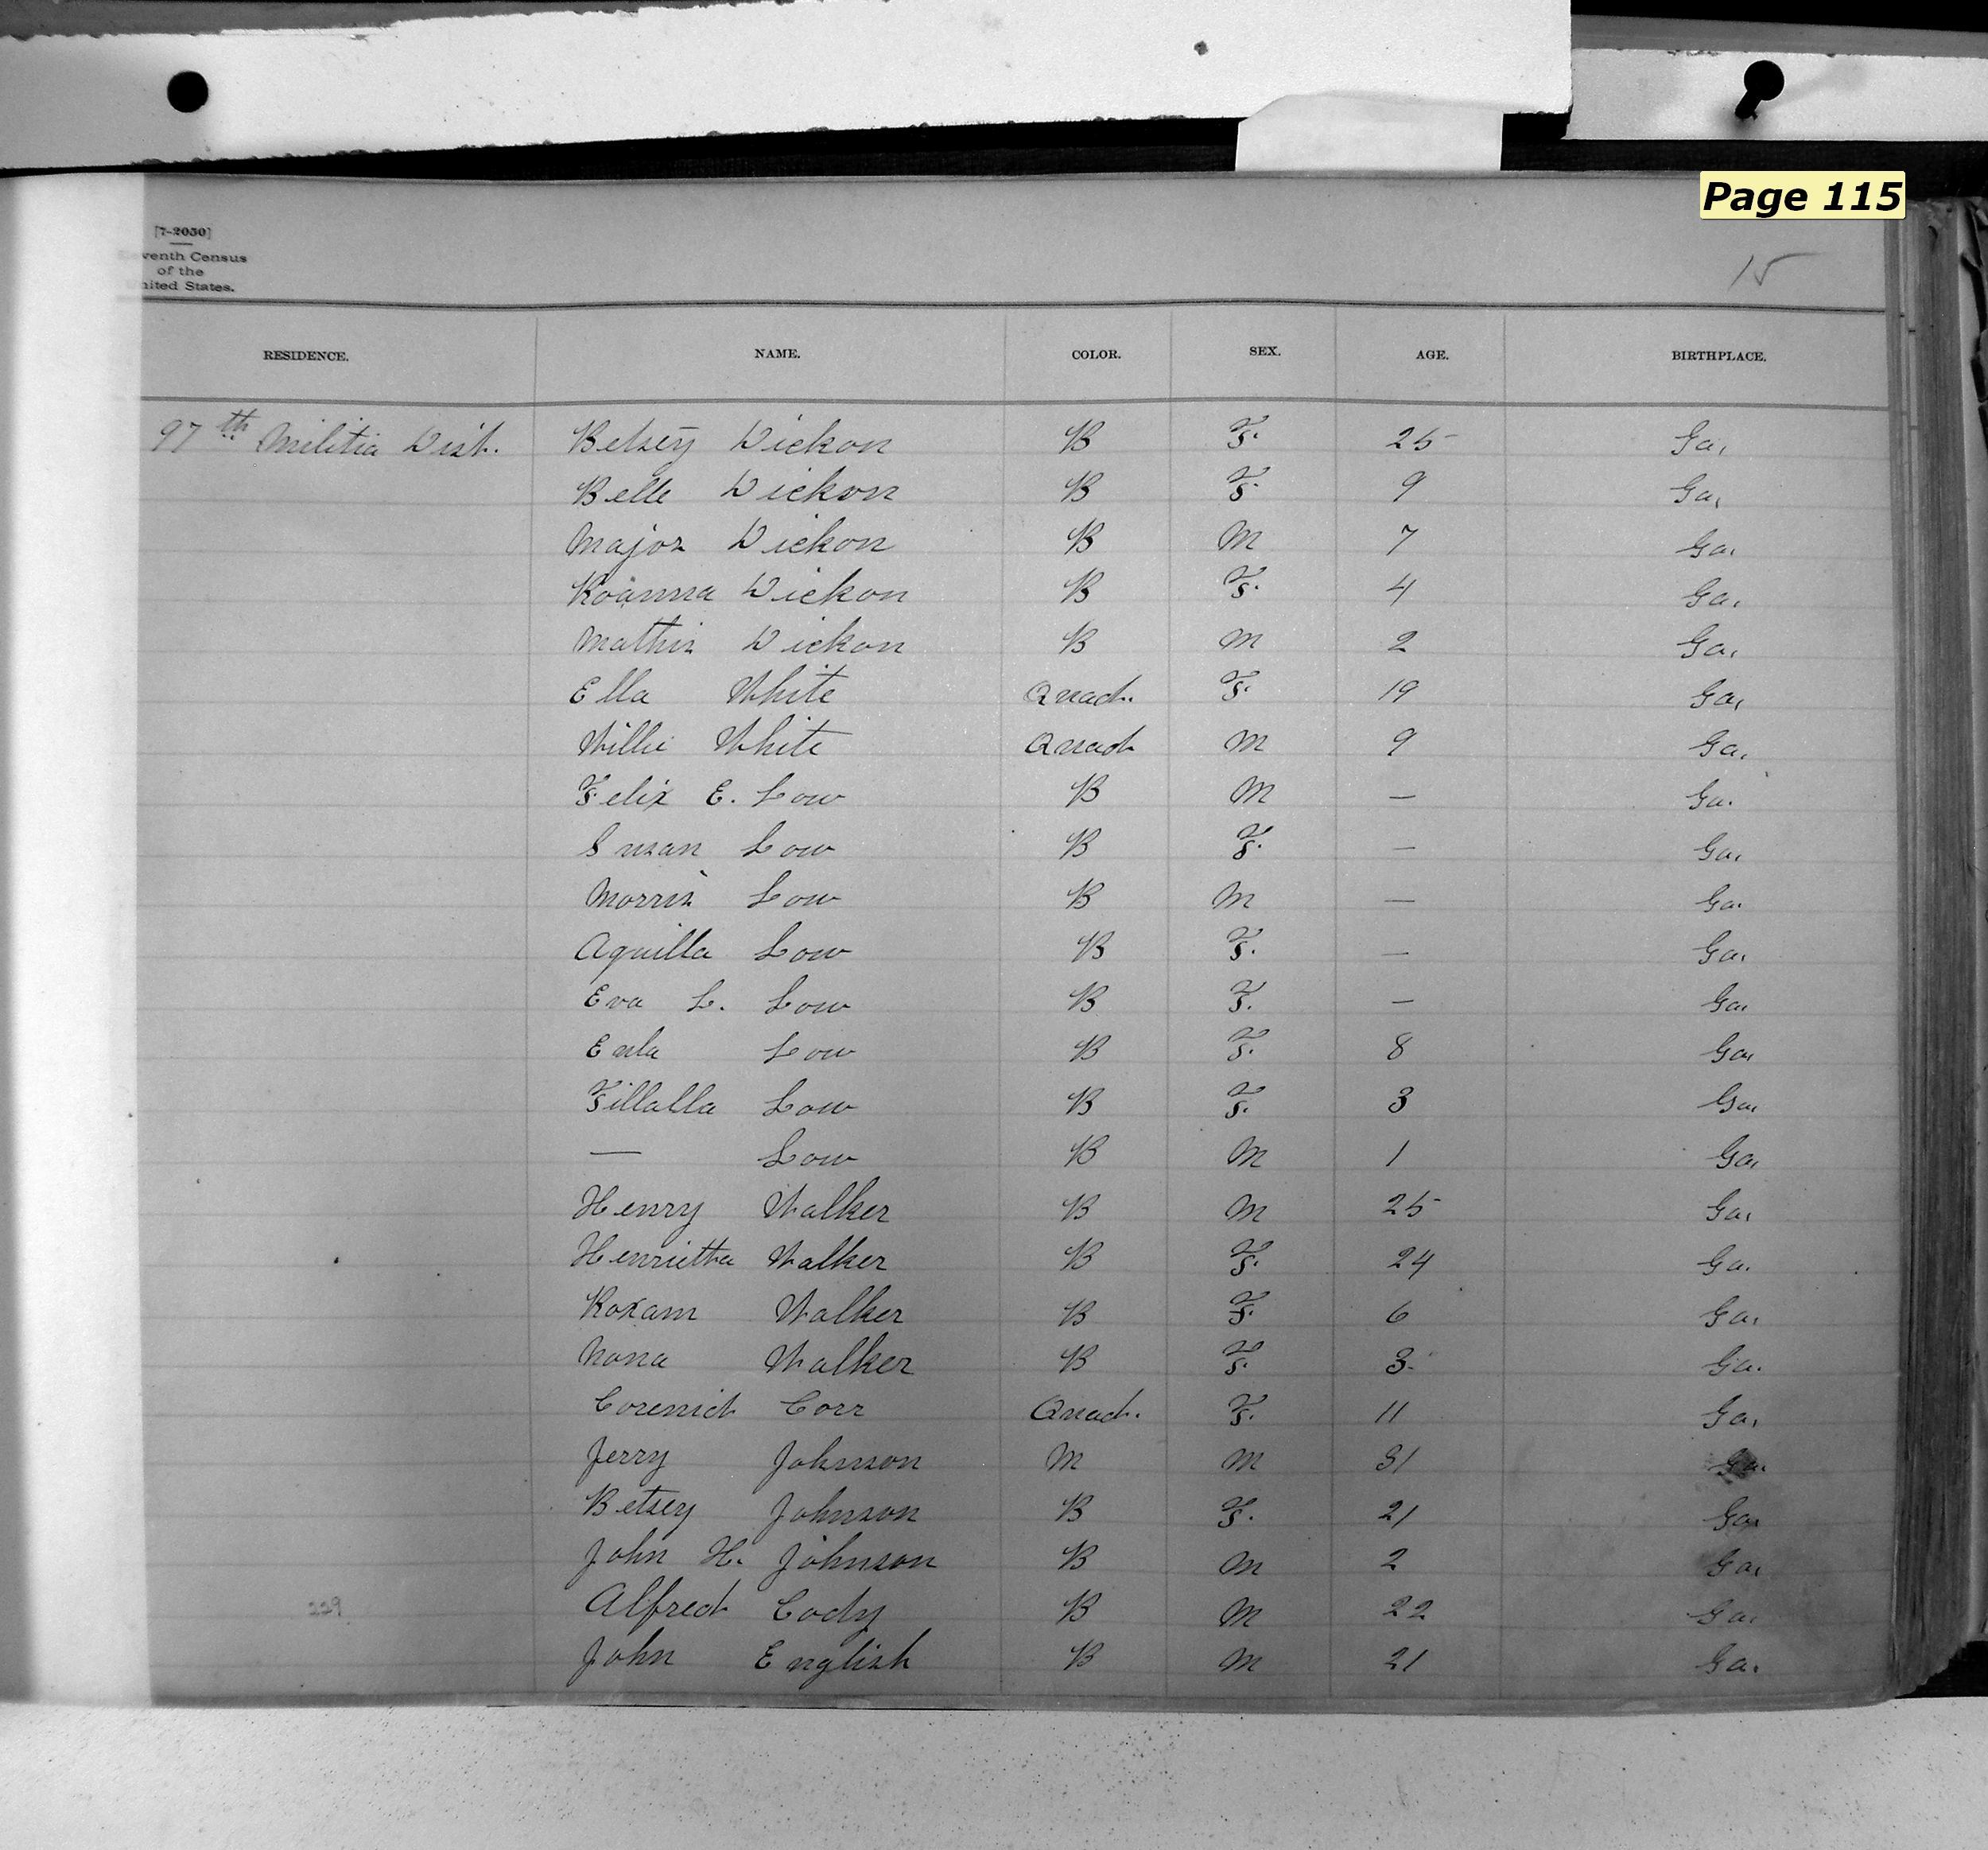 Page 115
[7-2050]
venth Census
of the
nited States.
15
RESIDENCE. NAME. COLOR. SEX. AGE. BIRTHPLACE.
97th Militia Dist. Betsey Dickon B F. 25 Ga.
Belle Dickon B F 9 Ga.
Major Dickon B M 7 Ga.
Roanna Dickon B F. 4 Ga.
Mathis Dickon B M 2 Ga.
Ella White Quad. F. 19 Ga.
Willie White Quad M 9 Ga.
Felix E. Low B M — Ga.
Susan Low B F. — Ga.
Morris Low B M — Ga.
Aquilla Low B F. — Ga.
Eva L. Low B F. — Ga.
Eula Low B F. 8 Ga.
Fillalla Low B F. 3 Ga.
— Low B M 1 Ga.
Henry Walker B M 25 Ga.
Henrietta Walker B F. 24 Ga.
Roxam Walker B F. 6 Ga.
Nona Walker B F. 3 Ga.
Corr Quad. F. 11 Ga.
Jerry Johnson M M 31 Ga.
Betsey Johnson B F. 21 Ga.
John H. Johnson B M 2 Ga.
229 Alfred Cody B M 22 Ga.
John English B M 21 Ga.